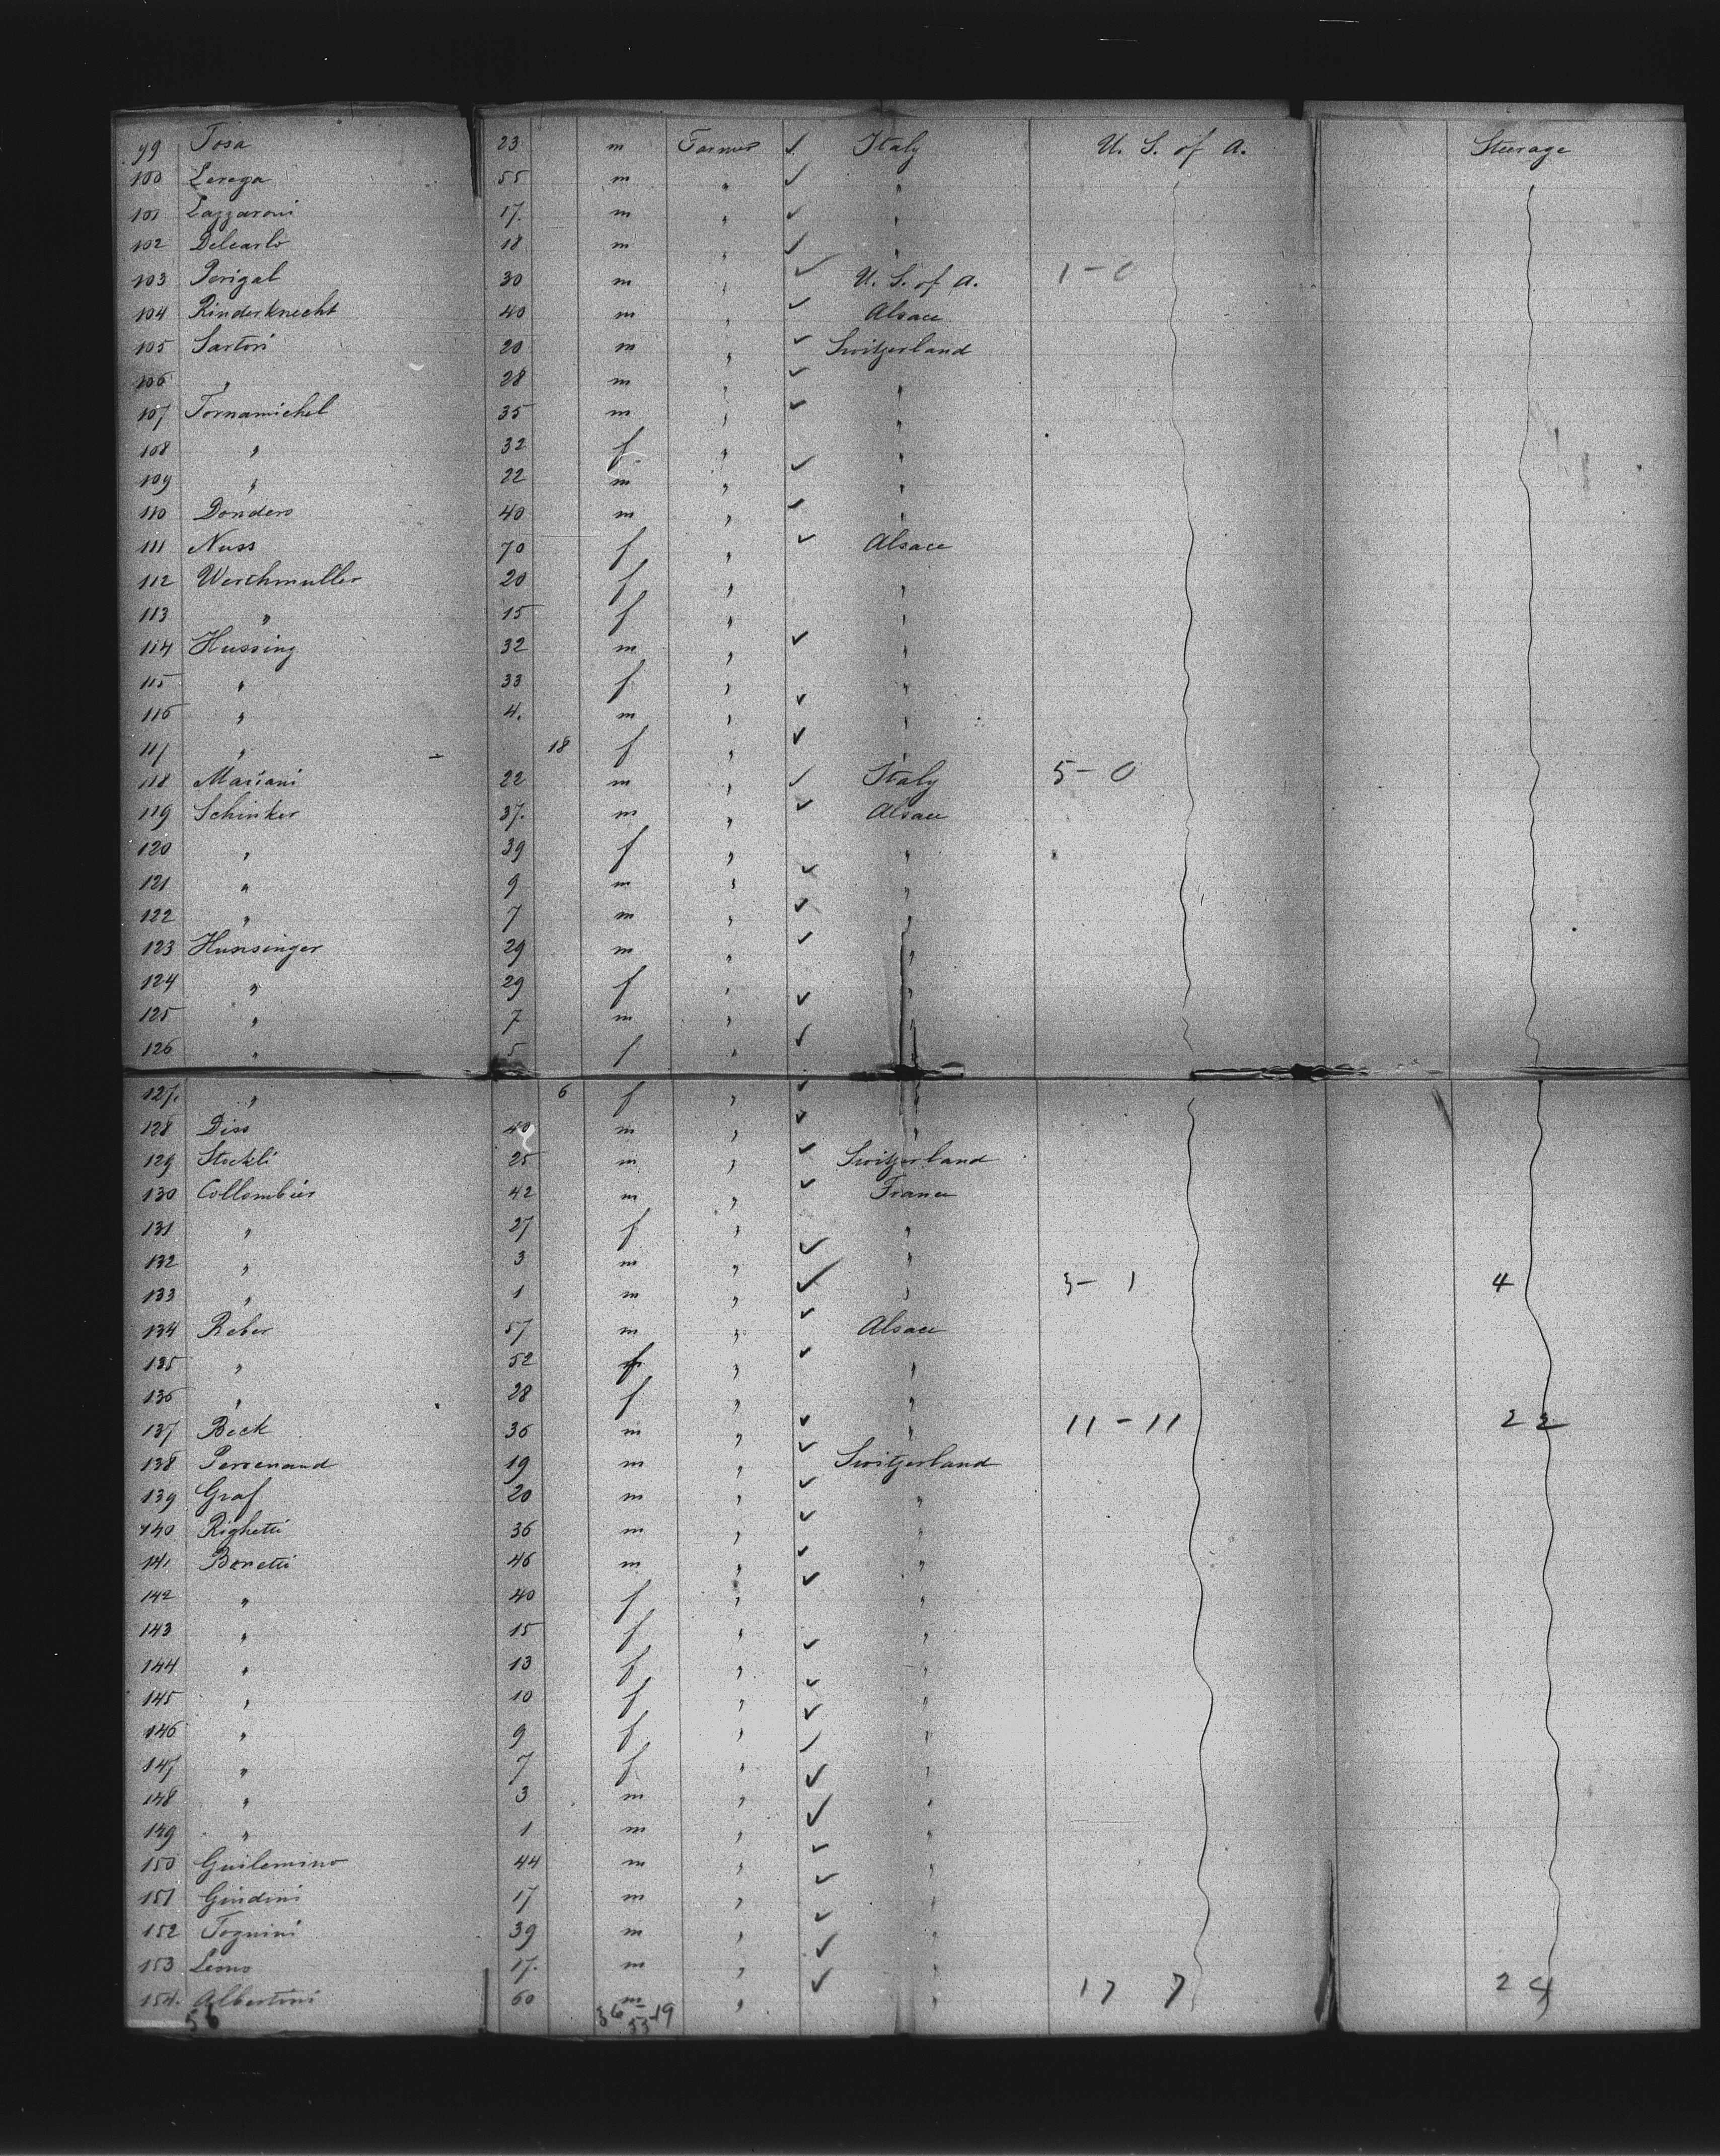 99 Tosa 23 m Farmer ✓ Italy U. S. of A. Steerage
100 Lerega 55 m " ✓ "
101 Lazzaroni 17. m " ✓ "
102 Delcarlo 18 m " ✓ "
103 Perigal 30 m " ✓ U. S. of A. 1-0
104 Rinderknecht 40 m " ✓ Alsace
105 Sartori 20 m " ✓ Switzerland
106 " 28 m " ✓ "
107 Tornamichel 35 m " ✓ "
108 " 32 f " "
109 " 22 m " ✓ "
110 Dondero 40 m " ✓ "
111 Nuss 70 f " ✓ Alsace
112 Werthmuller 20 f " "
113 " 15 f " "
114 Hussing 32 m " ✓ "
115 " 33 f " "
116 " 4. m " ✓ "
117 " 18 f " ✓ "
118 Mariani 22 m " ✓ Italy 5-0
119 Schinker 37. m " ✓ Alsace
120 " 39 f " "
121 " 9 m " ✓ "
122 " 7 m " ✓ "
123 Hunsinger 29 m " ✓ "
124 " 29 f " "
125 " 7 m " ✓ "
126 " 5 f " ✓
127. " 6 f " ✓ "
128 Diss 40 m " ✓ "
129 Stockli 25 m " ✓ Switzerland
130 Collombier 42 m " ✓ France
131 " 27 f " "
132 " 3 m " ✓ "
133 " 1 m " ✓ " 3-1 4
134 Reber 57 m " ✓ Alsace
135 " 52 f " ✓ "
136 " 28 f " "
137 Beck 36 m " ✓ " 11-11 22
138 Perrenand 19 m " ✓ Switzerland
139 Graf 20 m " ✓ "
140 Righetti 36 m " ✓
141 Bonetti 46 m " ✓ "
142 " 40 f " ✓ "
143 " 15 f " "
144 " 13 f " ✓ "
145 " 10 f " ✓ "
146 " 9 f " ✓ "
147 " 7 f " ✓ "
148 " 3 m " ✓ "
149 " 1 m " ✓ "
150 Guilemino 44 m " ✓ "
151 Gindini 17 m " ✓ "
152 Tognini 39 m " ✓ "
153 Lemo 17. m " ✓ "
154. Albertini 60 m " ✓ " 17 7 24
56 36-19